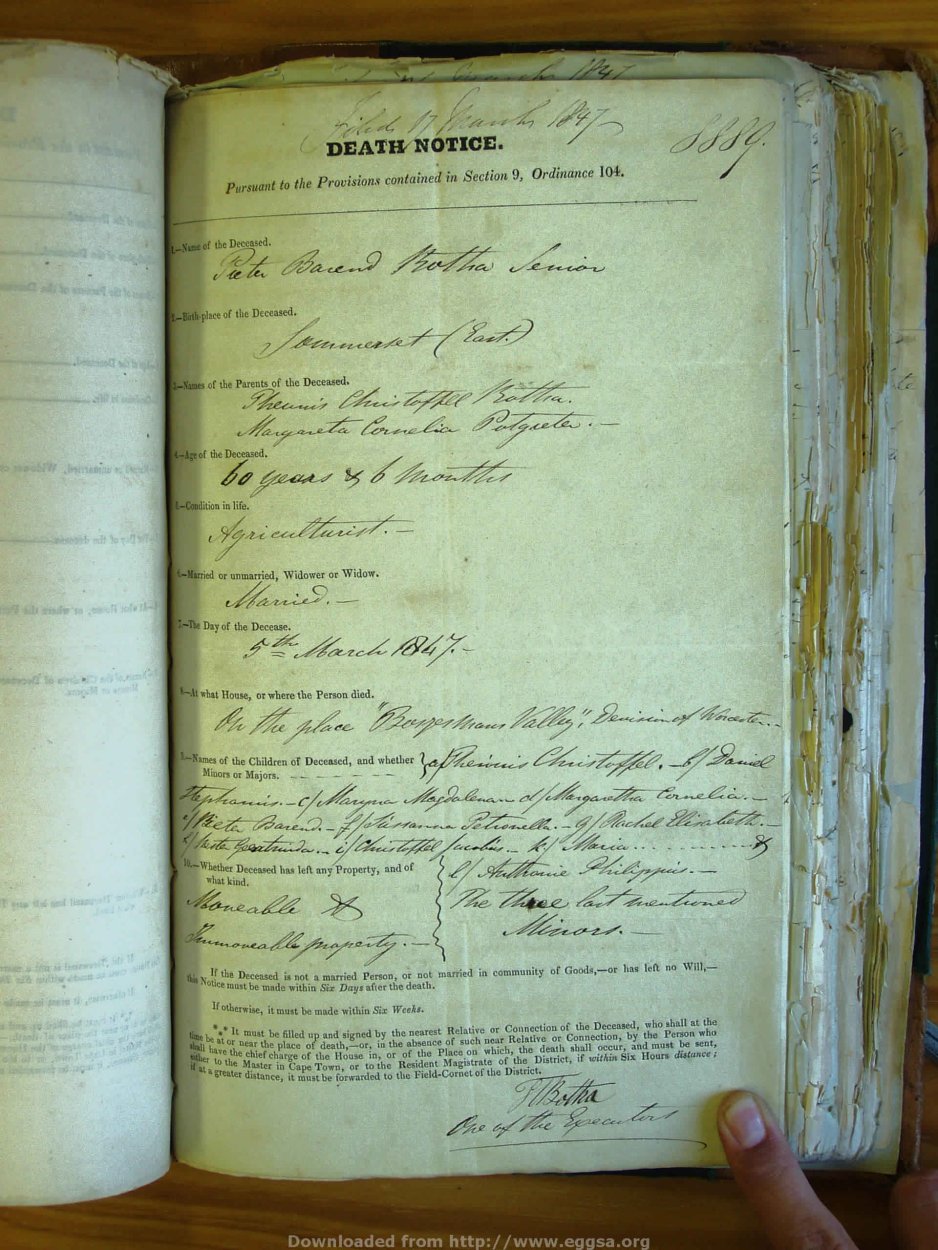 Filed 17 March 1847
8889.
DEATH NOTICE.
Pursuant to the Provisions contained in Section 9, Ordinance 104.
1.—Name of the Deceased.
Pieter Barend Botha Senior
2.—Birth-place of the Deceased.
Sommerset (East.)
3.—Names of the Parents of the Deceased.
Theunis Christoffel Botha.
Margareta Cornelia Potgieter.—
4.—Age of the Deceased.
60 years & 6 Months
5.—Condition in life.
Agriculturist.—
6.—Married or unmarried, Widower or Widow.
Married.—
7.—The Day of the Decease.
5th March 1847.—
8.—At what House, or where the Person died.
On the place "Bosjesmans Valley", Devision of Worcester..
9.—Names of the Children of Deceased, and whether Minors or Majors.
a/ Theunis Christoffel.—b/ Daniel
Stephanus.—c/ Maryna Magdalena—d/ Margaretha Cornelia.—
e/ Pieter Barend.—f/ Sussanna Petronella.—g/ Rachel Elisabeth.—
h/ Hester Gertruida.—i/ Christoffel Jacobus.—k/ Maria..........&
l/ Anthonie Philippus.—
The three last mentioned
Minors.—
10.—Whether Deceased has left any Property, and of what kind.
Moveable &
Immoveable property.—
If the Deceased is not a married Person, or not married in community of Goods,—or has left no Will,—
this Notice must be made within Six Days after the death.
If otherwise, it must be made within Six Weeks.
*** It must be filled up and signed by the nearest Relative or Connection of the Deceased, who shall at the
time be at or near the place of death,—or, in the absence of such near Relative or Connection, by the Person who
shall have the chief charge of the House in, or of the Place on which, the death shall occur, and must be sent,
either to the Master in Cape Town, or to the Resident Magistrate of the District, if within Six Hours distance;
if at a greater distance, it must be forwarded to the Field-Cornet of the District.
Botha
One of the Executors
Downloaded from http://www.eggsa.org